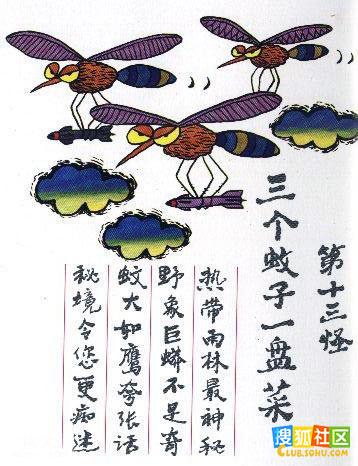 第十三怪
三个蚊子一盘菜
热带雨林最神秘
野象巨蟒不是奇
蚊大如鹰夸张话
秘境令您更痴迷
搜狐社区
CLUB.SOHU.COM